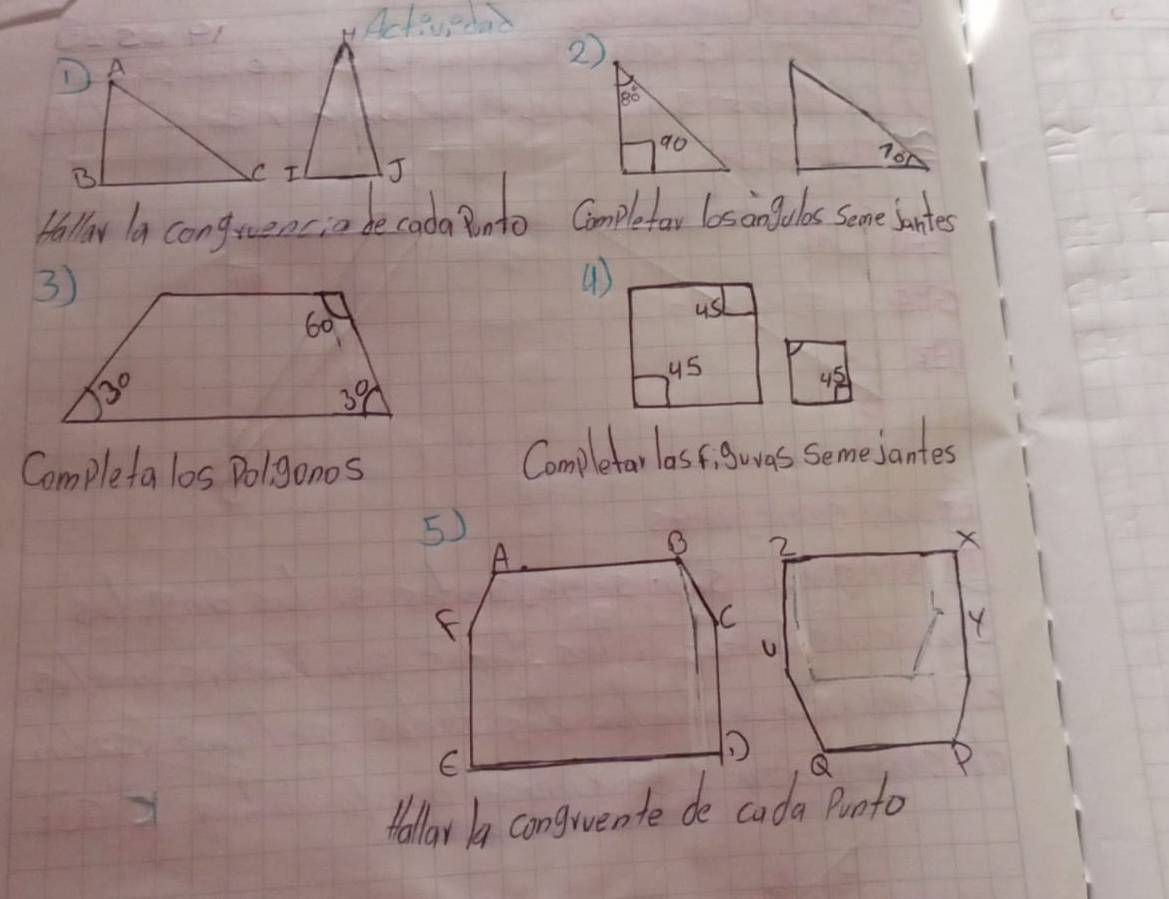 Actividad
1) A B C H I J
2) 80° 90 10
Hallar la congruencia de cada Punto
Completar los ángulos semejantes
3) 30 60 30
4) 45 45 45
Completa los Poligonos
Completar las figuras semejantes
5) A B C D E F Z X Y P Q U
Hallar la congruente de cada Punto